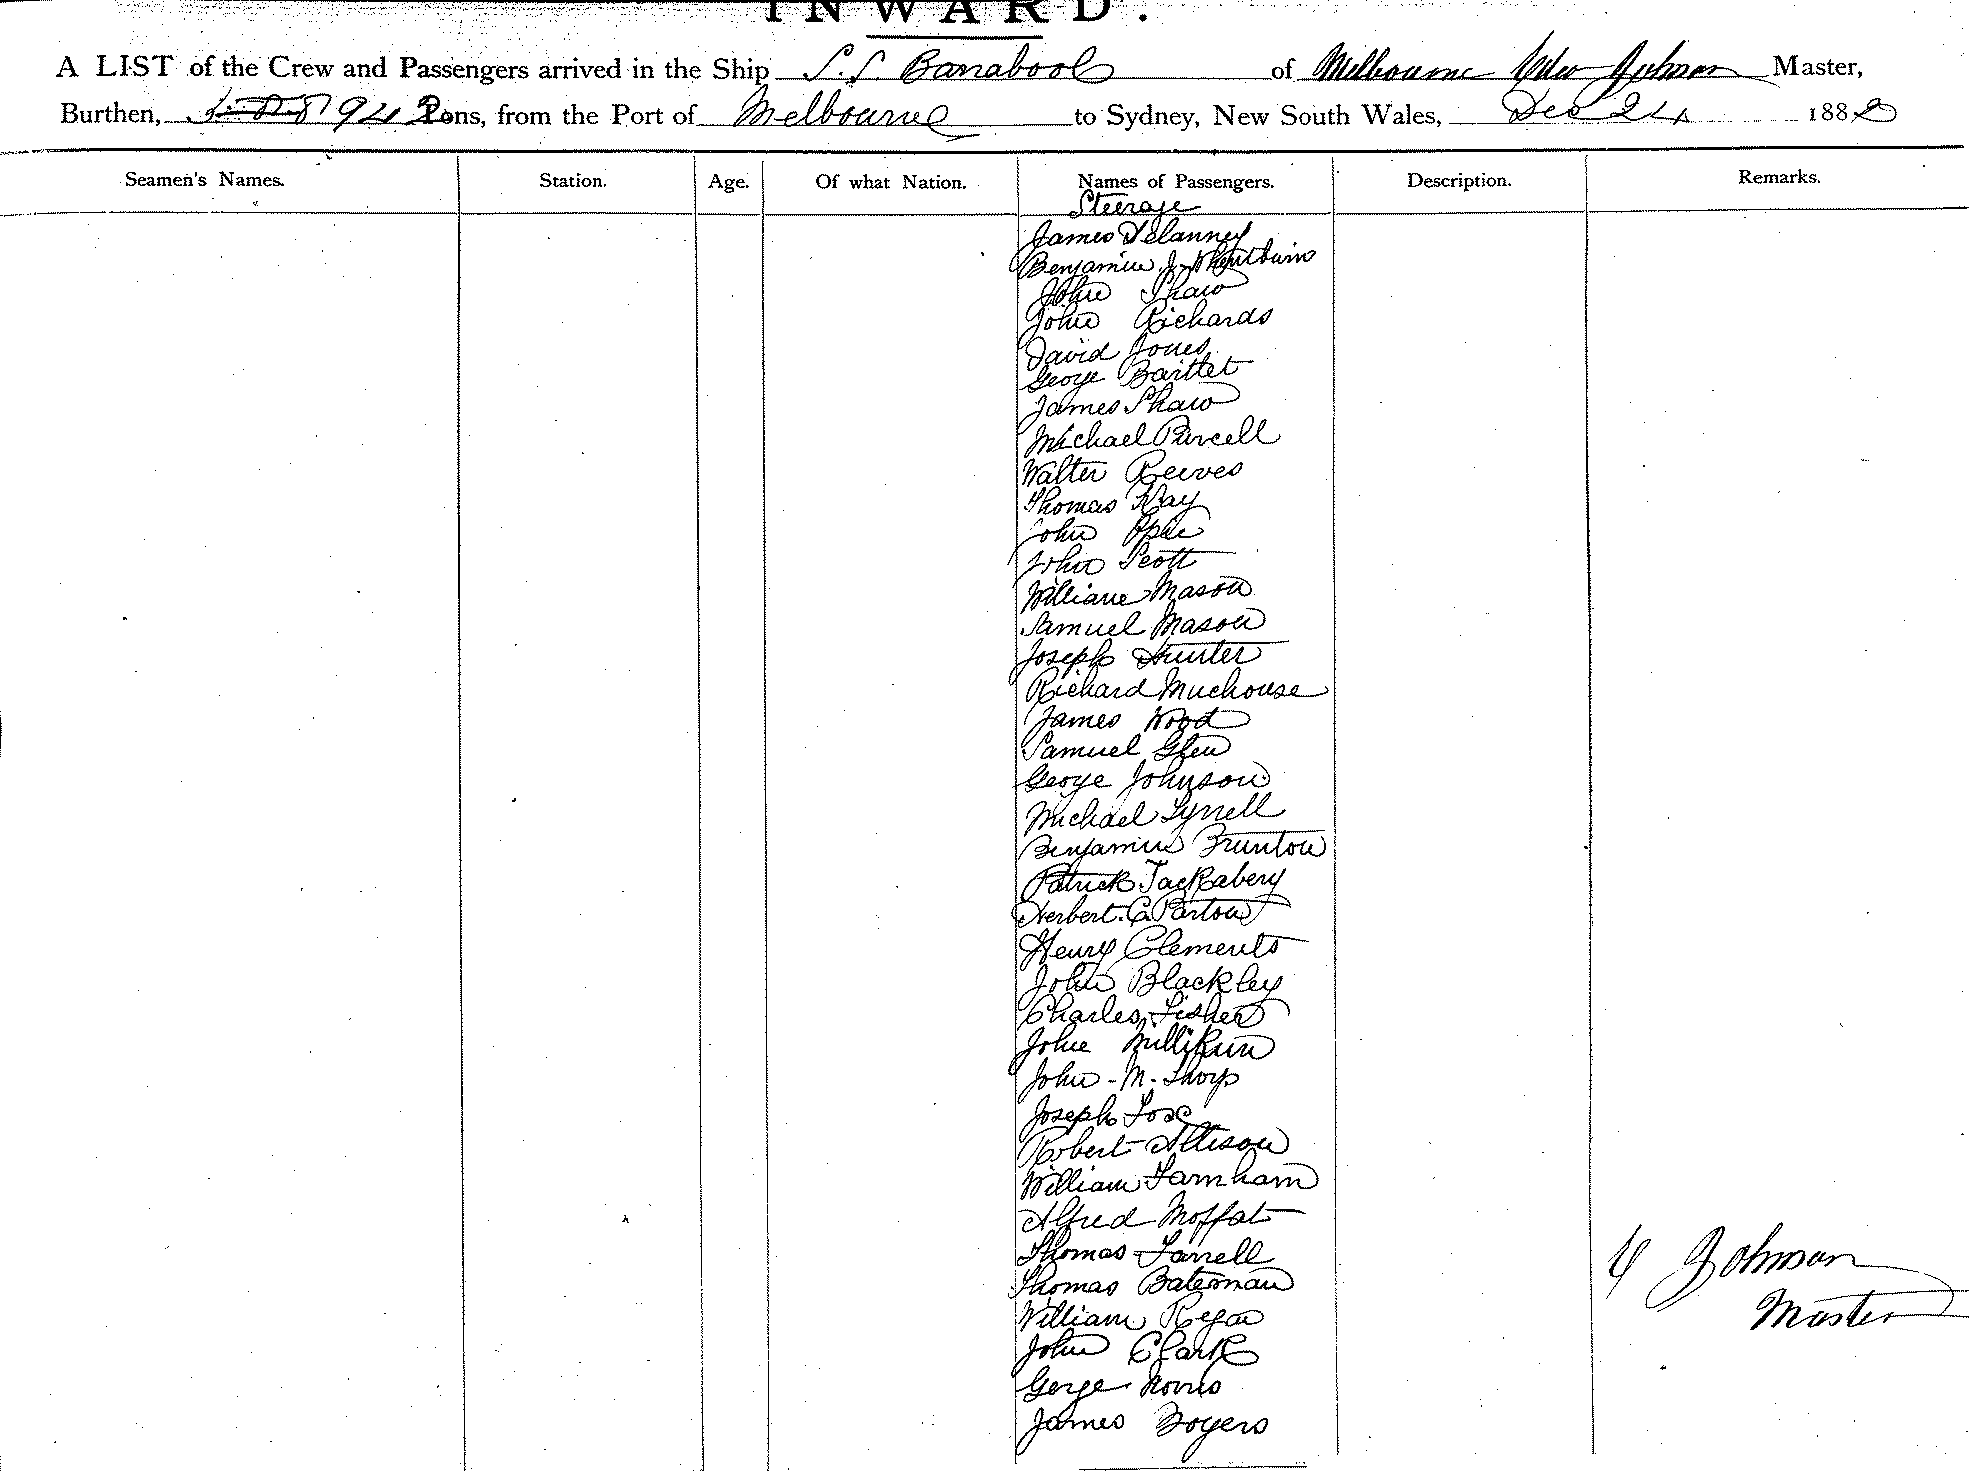 INWARD.
A LIST of the Crew and Passengers arrived in the Ship S.S Barrabool of Melbourne Johnson Master,
Burthen, 942 Tons, from the Port of Melbourne to Sydney, New South Wales, Dec 24 1882
Seamen's Names. Station. Age. Of what Nation. Names of Passengers. Description. Remarks.
Steerage
James Delanney
Benjamin J.
John Shaw
John Richards
David Jones
George Barttet
James Shaw
Michael Purcell
Walter Reeves
Thomas Kay
John Opie
John Scott
William Mason
Samuel Mason
Joseph Hunter
Richard Muchouse
James Wood
Samuel Glen
George Johnson
Michael Tyrrell
Benjamin Brunton
Patrick Tackabery
Herbert C. Parton
Henry Clements
John Blackley
Charles Fisher
John Millikin
John - M. Thorp
Joseph Fox
Robert Allison
William Farnham
Alfred Moffat
Thomas Farrell
Thomas Bateman
William Regan
John Clark
Gerge Norris
James Boyers
Johnson
Master